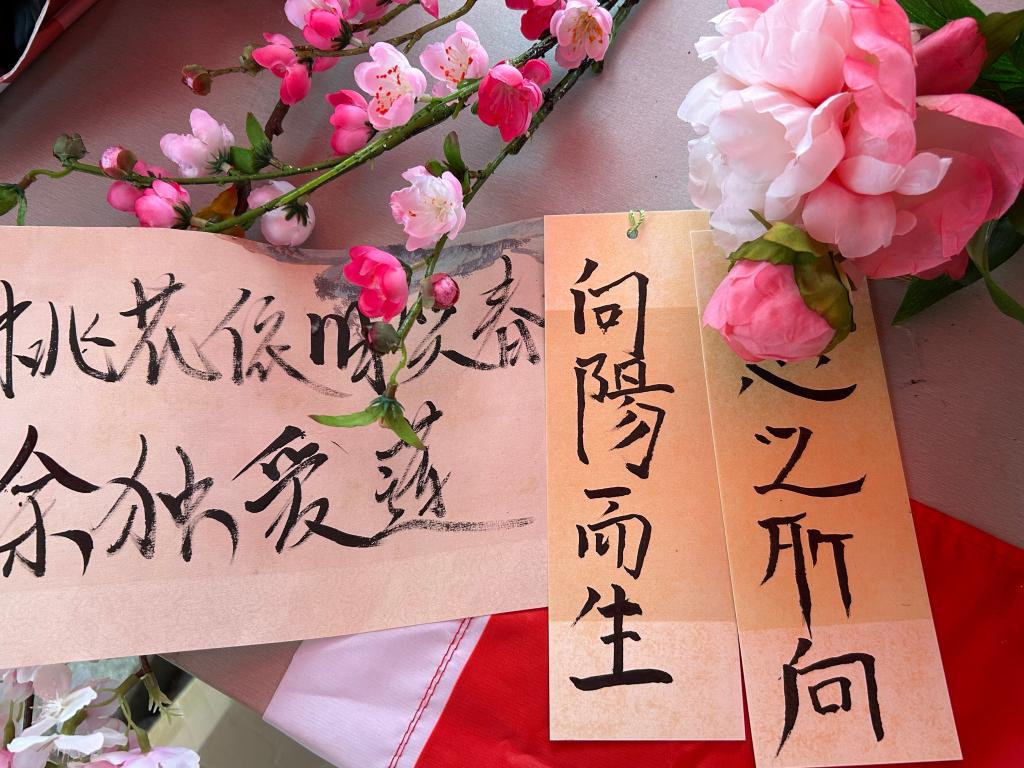 桃花依旧笑春
余独爱莲
向陽而生
心之所向